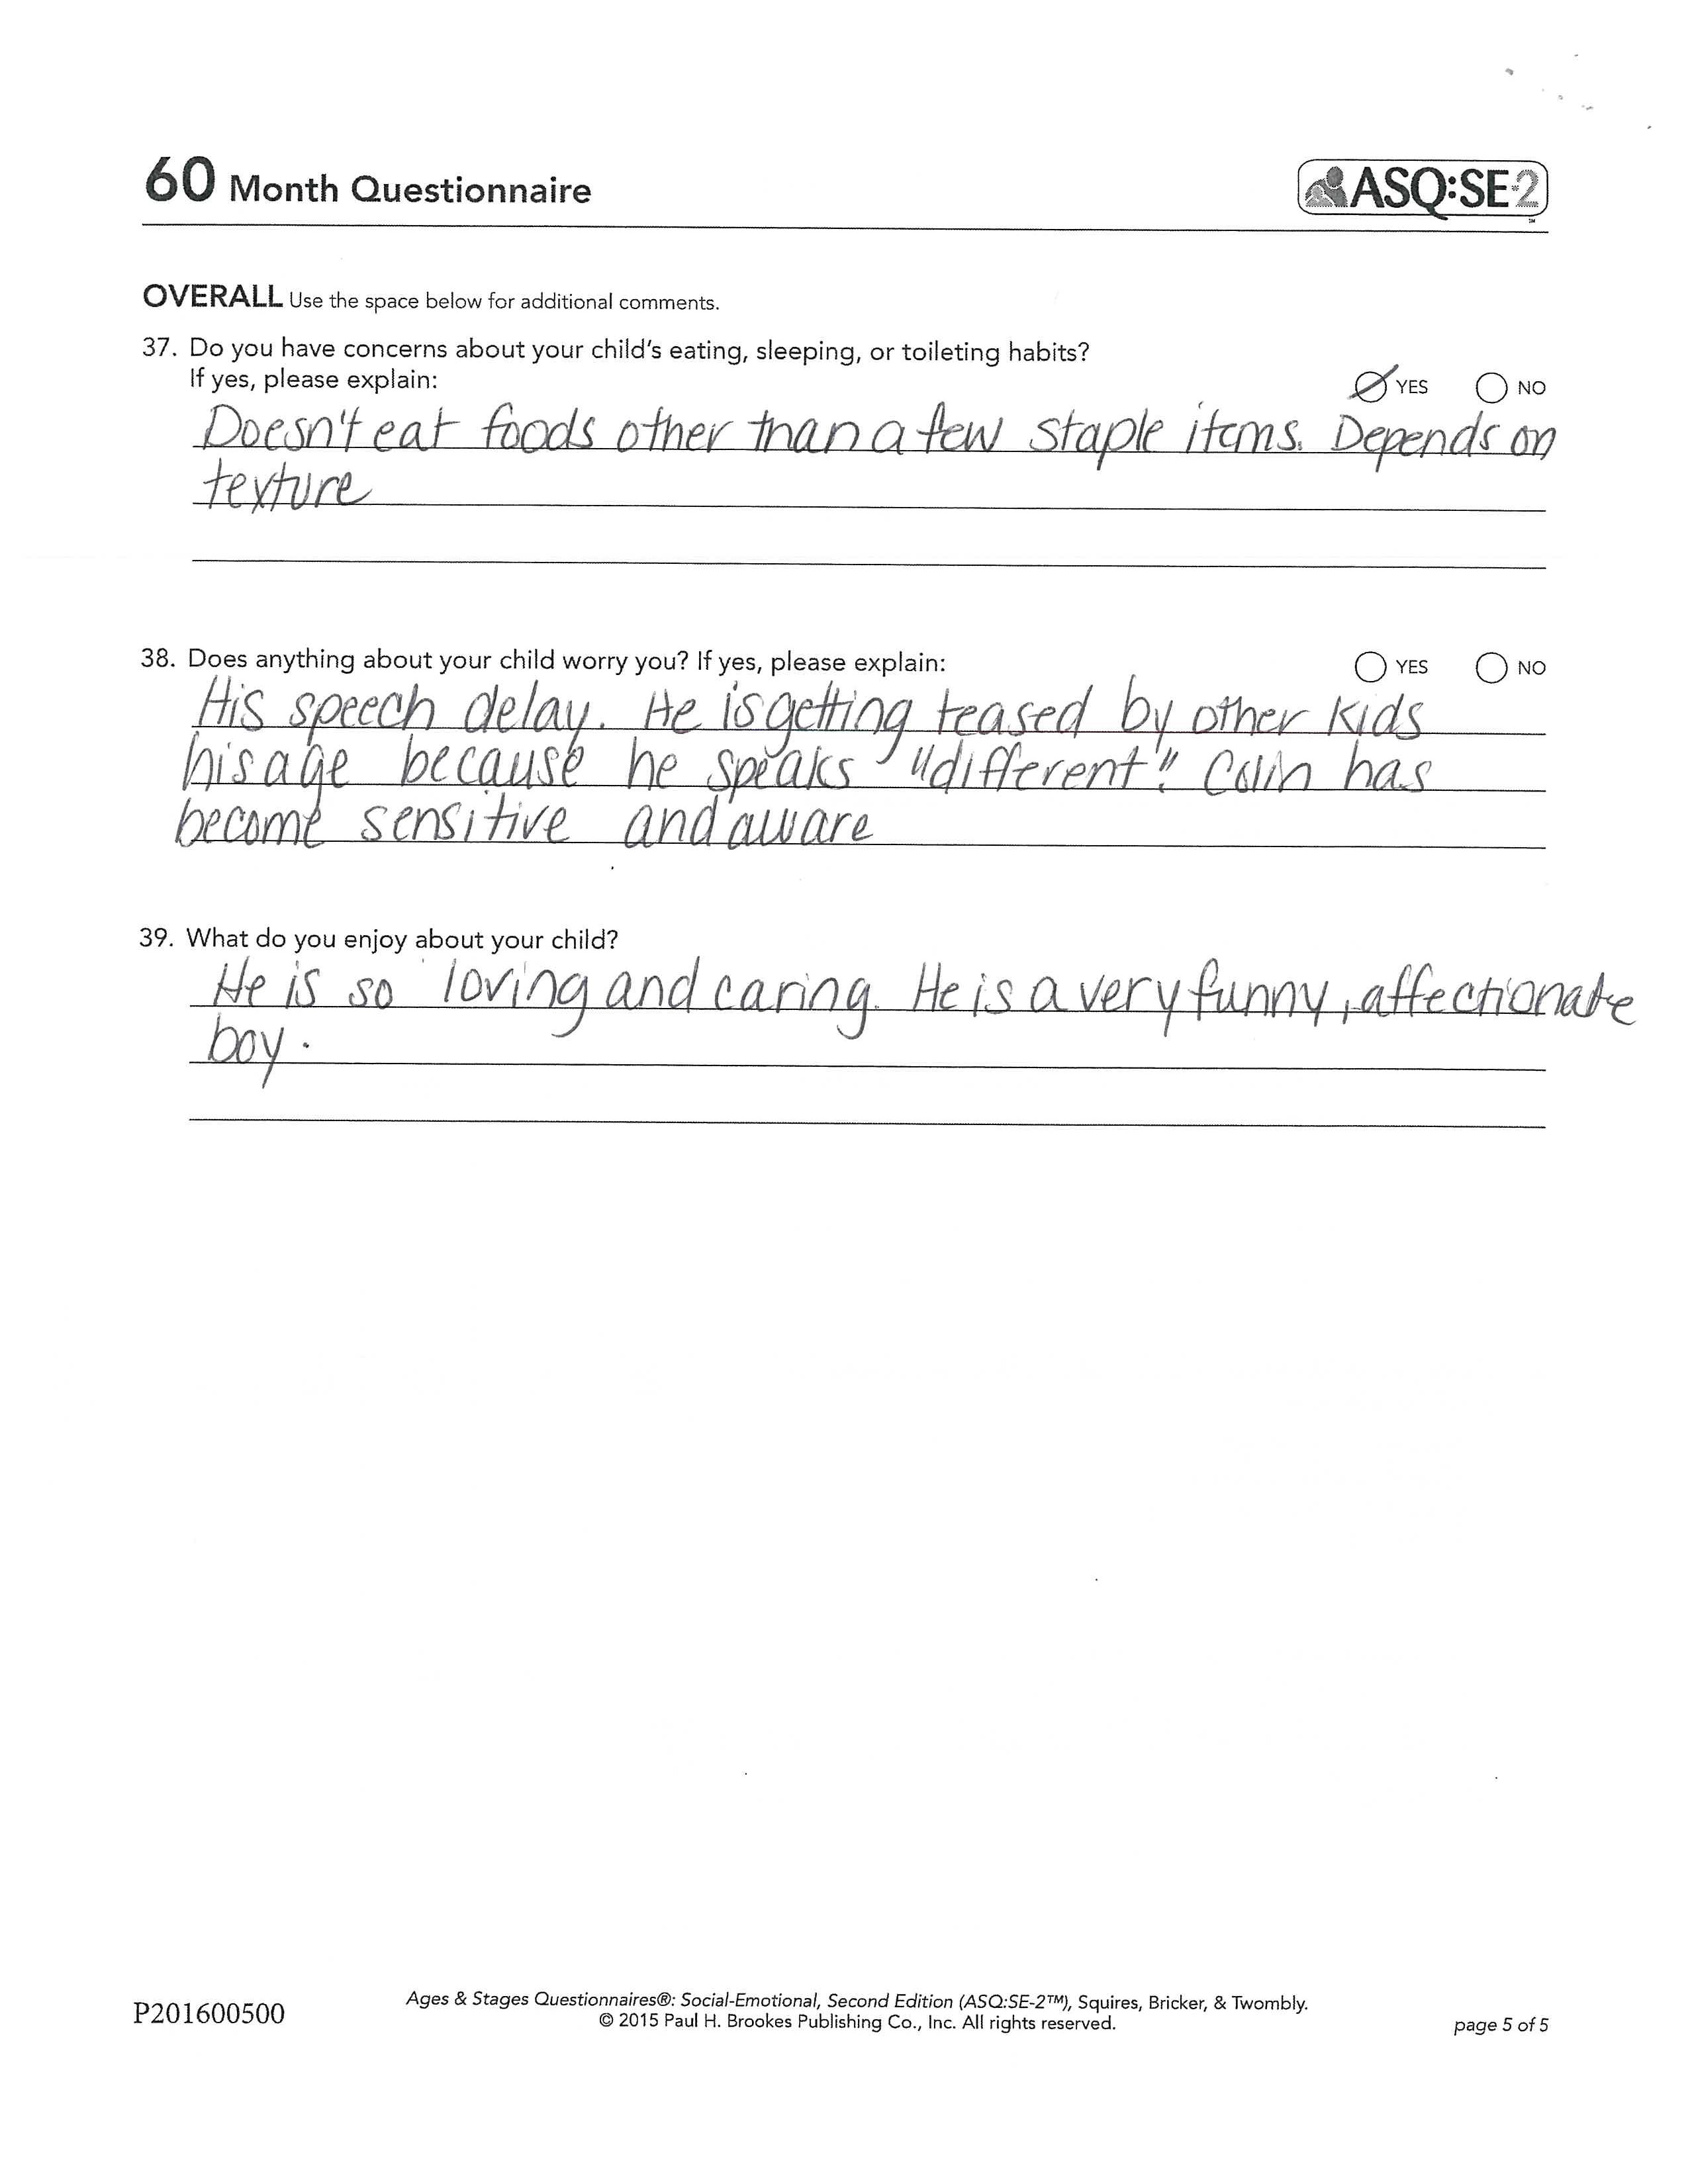 60 Month Questionnaire
ASQ:SE-2
SM
OVERALL Use the space below for additional comments.
37. Do you have concerns about your child's eating, sleeping, or toileting habits?
If yes, please explain:
YES NO
Doesn't eat foods other than a few staple items. Depends on
texture
38. Does anything about your child worry you? If yes, please explain:
YES NO
His speech delay. He is getting teased by other kids
his age because he speaks "different". Colin has
become sensitive and aware
39. What do you enjoy about your child?
He is so loving and caring. He is a very funny, affectionate
boy.
P201600500
Ages & Stages Questionnaires®: Social-Emotional, Second Edition (ASQ:SE-2™), Squires, Bricker, & Twombly.
© 2015 Paul H. Brookes Publishing Co., Inc. All rights reserved.
page 5 of 5